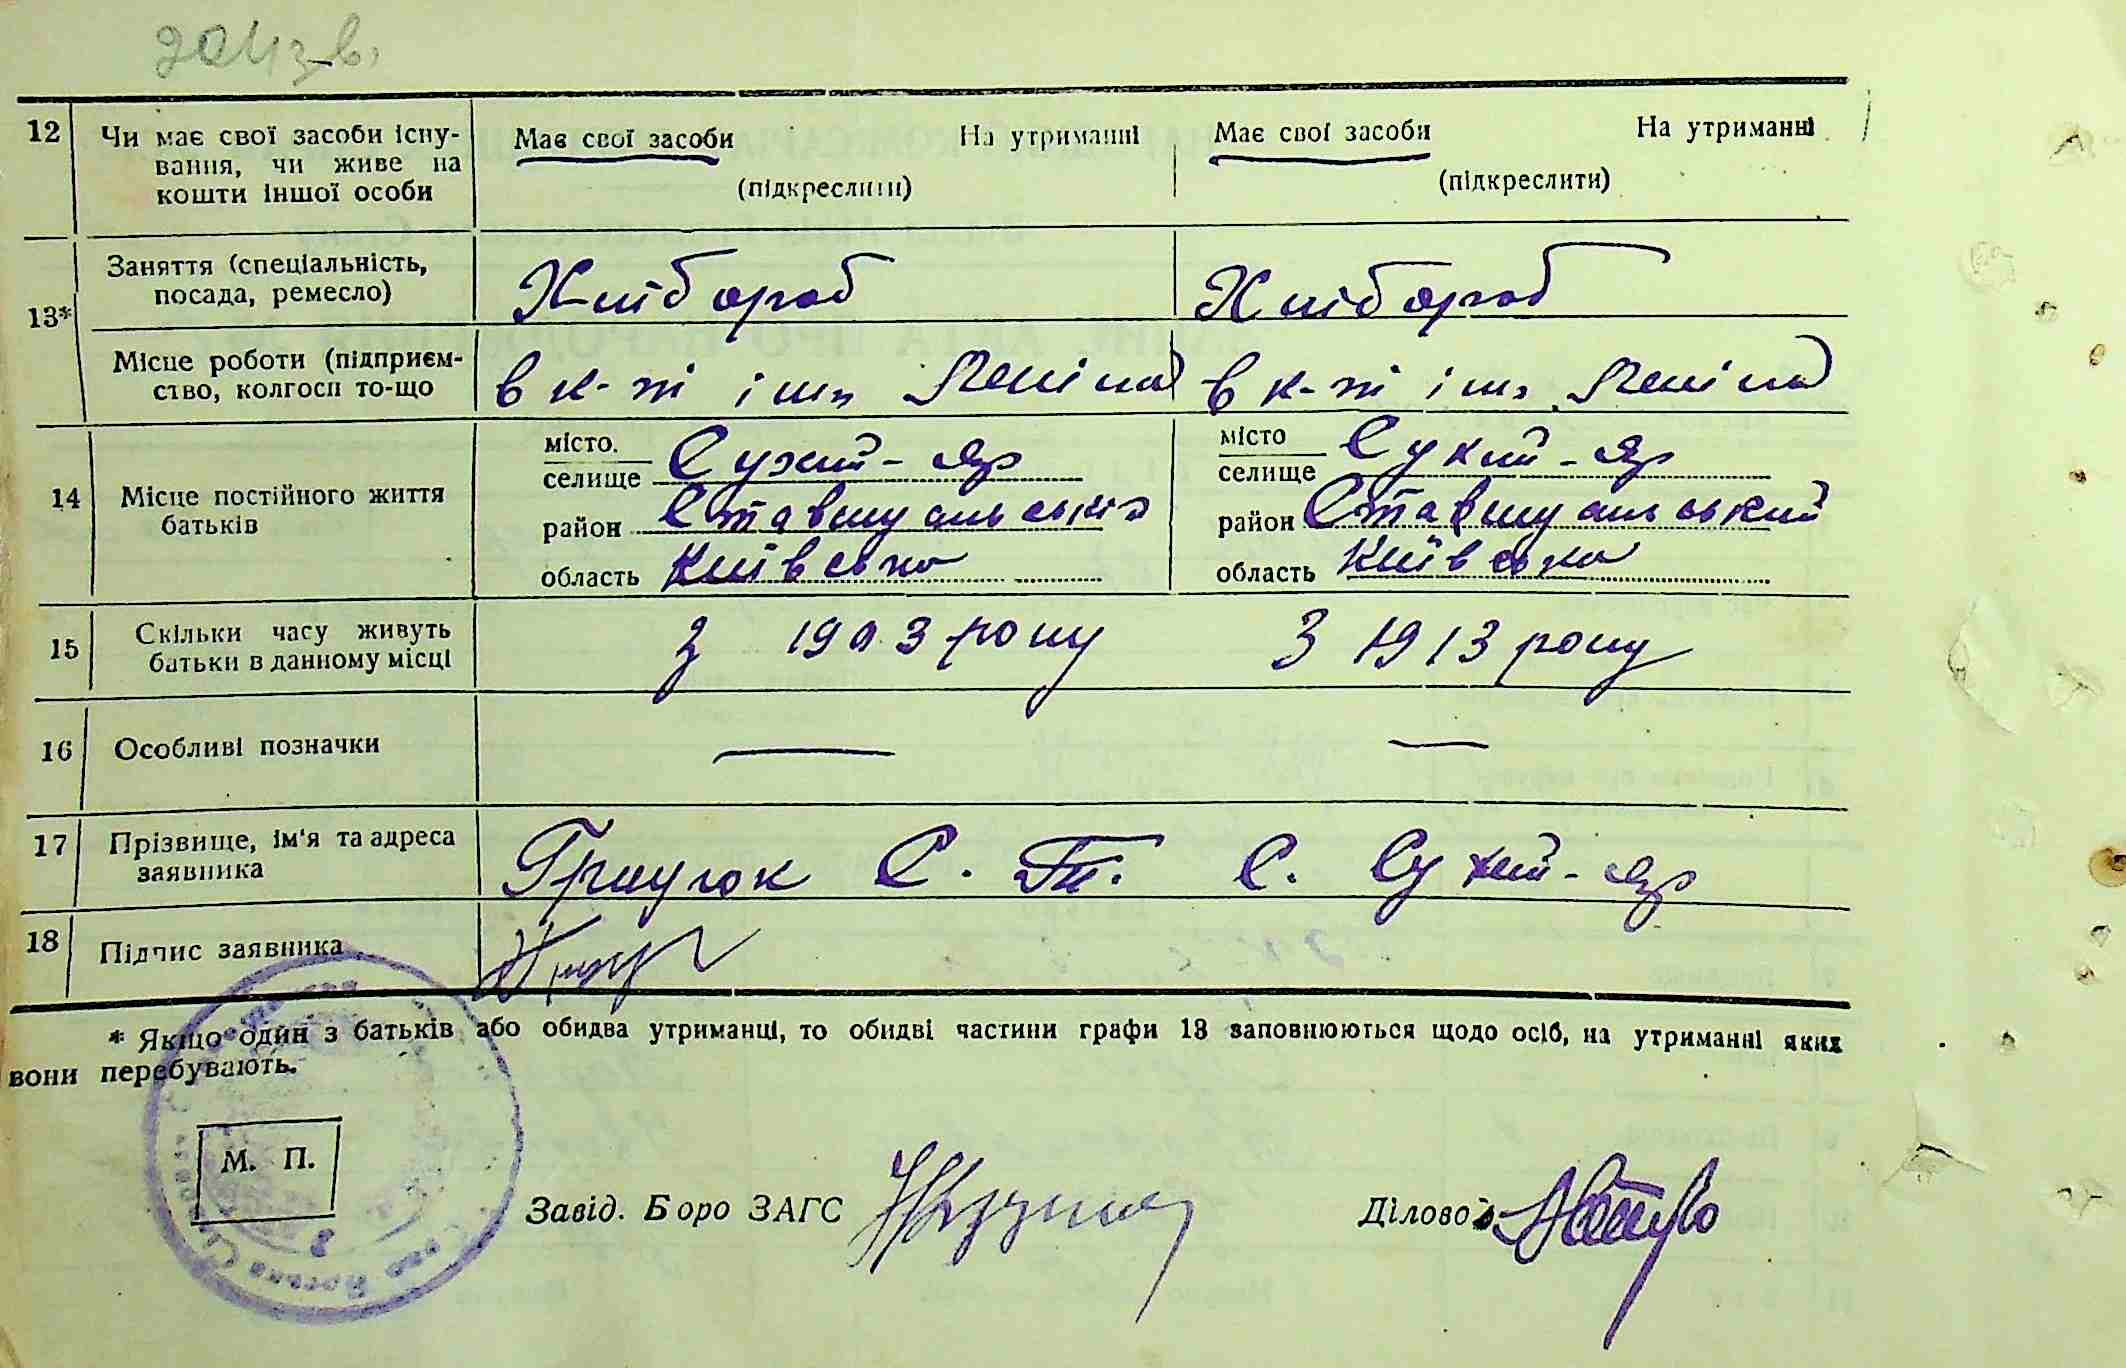 12 Чи має свої засоби існу- Має свої засоби На утриманні Має свої засоби На утриманні
вання, чи живе на (підкреслити) (підкреслити)
кошти іншої особи
13* Заняття (спеціальність, Хлібороб Хлібороб
посада, ремесло)
Місце роботи (підприєм- в к-пі ім. Леніна в к-пі ім. Леніна
ство, колгосп то-що
14 Місце постійного життя батьків
місто. селище Сухий-Яр місто селище Сухий-Яр
район Ставищанський район Ставищанський
область Київська область Київська
15 Скільки часу живуть З 1903 року З 1913 року
батьки в данному місці
16 Особливі позначки — —
17 Прізвище, ім'я та адреса Грицюк С. Т. С. Сухий-Яр
заявника
18 Підпис заявника
* Якщо один з батьків або обидва утриманці, то обидві частини графи 13 заповнюються щодо осіб, на утриманні яких
вони перебувають.
М. П.
Завід. Боро ЗАГС Діловод